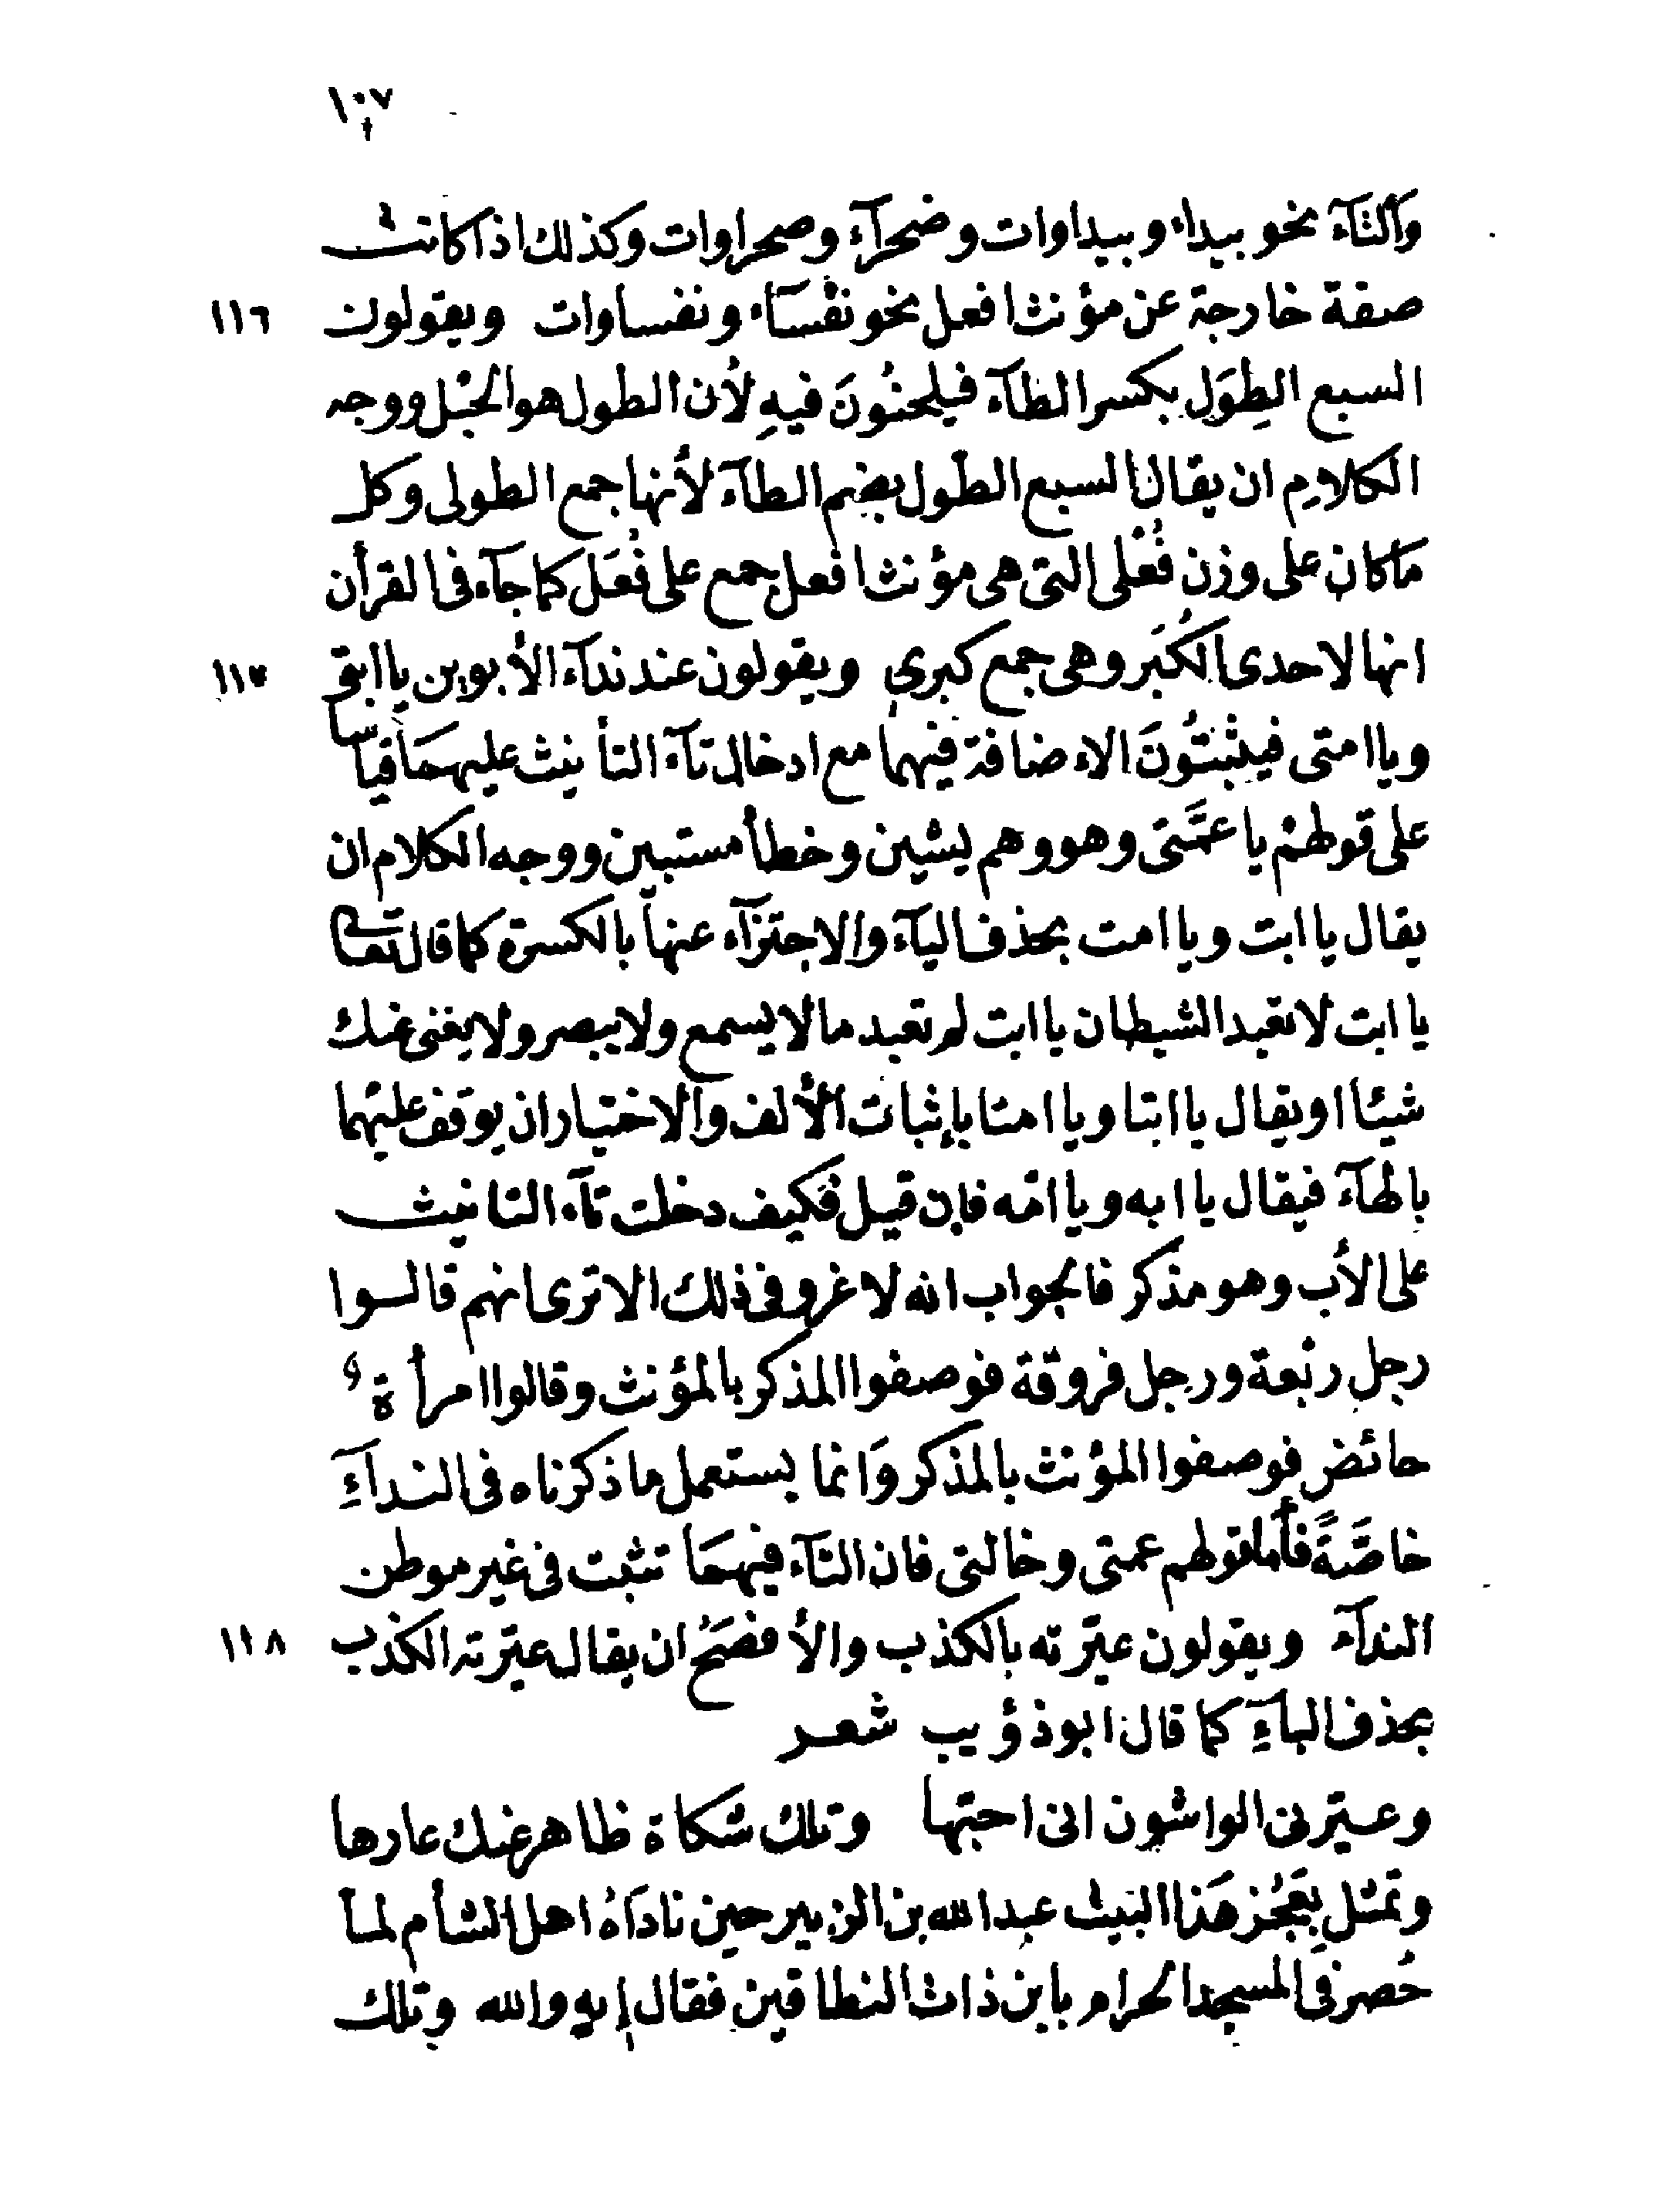 ١٠٧
وألتآء نحو بيداء وبيداوات وضحرآء وصحراوات وكذلك اذا كانت
صفة خارجة عن مؤنث افعل نحو نفْسآء ونفساوات ويقولون ١١٦
السبع الطِوَل بكسر الطآء فيلحنُونَ فيهِ لأن الطول هو الحبْل ووجه
الكلام ان يقال السبع الطول بضم الطآء لأنها جمع الطولى وكل
ما كان على وزن فُعْلى التى هى مؤنث افعل جمع على فُعَل كما جآء فى القرأن
انها لاحدى الكُبَر وهى جمع كبرى ويقولون عند ندآء الأبوين يا ابتى ١١٧
ويا امتى فيثبتُونَ الاءضافة فيهما مع ادخال تآء التأنيث عليهمَا قياسا
على قولهمْ يا عمَّتى وهو وهم يشين وخطأ مستبين ووجه الكلام ان
يقال يا ابت ويا امت بحذف اليآء والاجتزآء عنها بالكسرة كما قال تعالى
يا ابت لا تعبد الشيطان يا ابت لم تعبد ما لا يسمع ولا يبصر ولا يغنى عنك
شيئا او يقال يا ابتا ويا امتا بإثبات الألف والاختيار ان يوقف عليهما
بالهآء فيقال يا ابه ويا امّه فإن قيل فكيف دخلت تآء التانيث
على الأب وهو مذكر فالجواب انه لا غرو فى ذلك الا ترى انهم قالوا
رجل ربْعة ورجل فروقة فوصفوا المذكر بالمؤنث وقالوا امرأة
حائض فوصفوا المؤنث بالمذكر وَانما يستعمل ما ذكرناه فى الندآءِ
خاصَّةً فأما قولهم عمتى وخالتى فان التآء فيهمَا تثبت فى غير موطن
الندآء ويقولون عيّرته بالكذب والأفصَحُ ان يقال عيّرته الكذب ١١٨
بحذف الباءِ كما قال ابو ذؤيب شعر
وعيّرنى الواشون انى احبّها وتلك شكاة ظاهر عنك عارها
وتمثل بِعَجُز هَذا البيْت عبد الله بن الزبير حين نادَاهُ اهل الشأم لما
حُصر فِى المسجد الحرام يا بن ذات النطاقين فقال إيهٍ والله وتلك